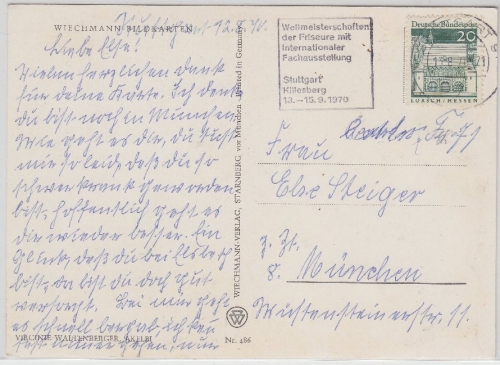 WIECHMANN-BILDKARTEN
Stuttgart 12.8.70.
Liebe Else!
Vielen herzlichen Dank
für deine Karte. Ich denk
du bist noch in München
Wie geht es dir, du tust
mir so leid, daß du so
schwer krank geworden
bist, hoffentlich geht es
dir wieder besser. Ein
Glück, daß du bei Elsbeth
bist, da bist du doch gut
versorgt. Bei mir geht
es schnell bergab, ich kan
fast nimer gehen, nur
VIRGINIE WALTENBERGER, AKELEI
Nr. 486
WIECHMANN-VERLAG, STARNBERG vor München Printed in Germany
Weltmeisterschaften
der Friseure mit
Internationaler
Fachausstellung
Stuttgart
Killesberg
13.—15.9.1970
Deutsche Bundespost
20
LORSCH/HESSEN
Frau
Else Steiger
z. Zt.
8. München
Wuttensteinerstr. 11.